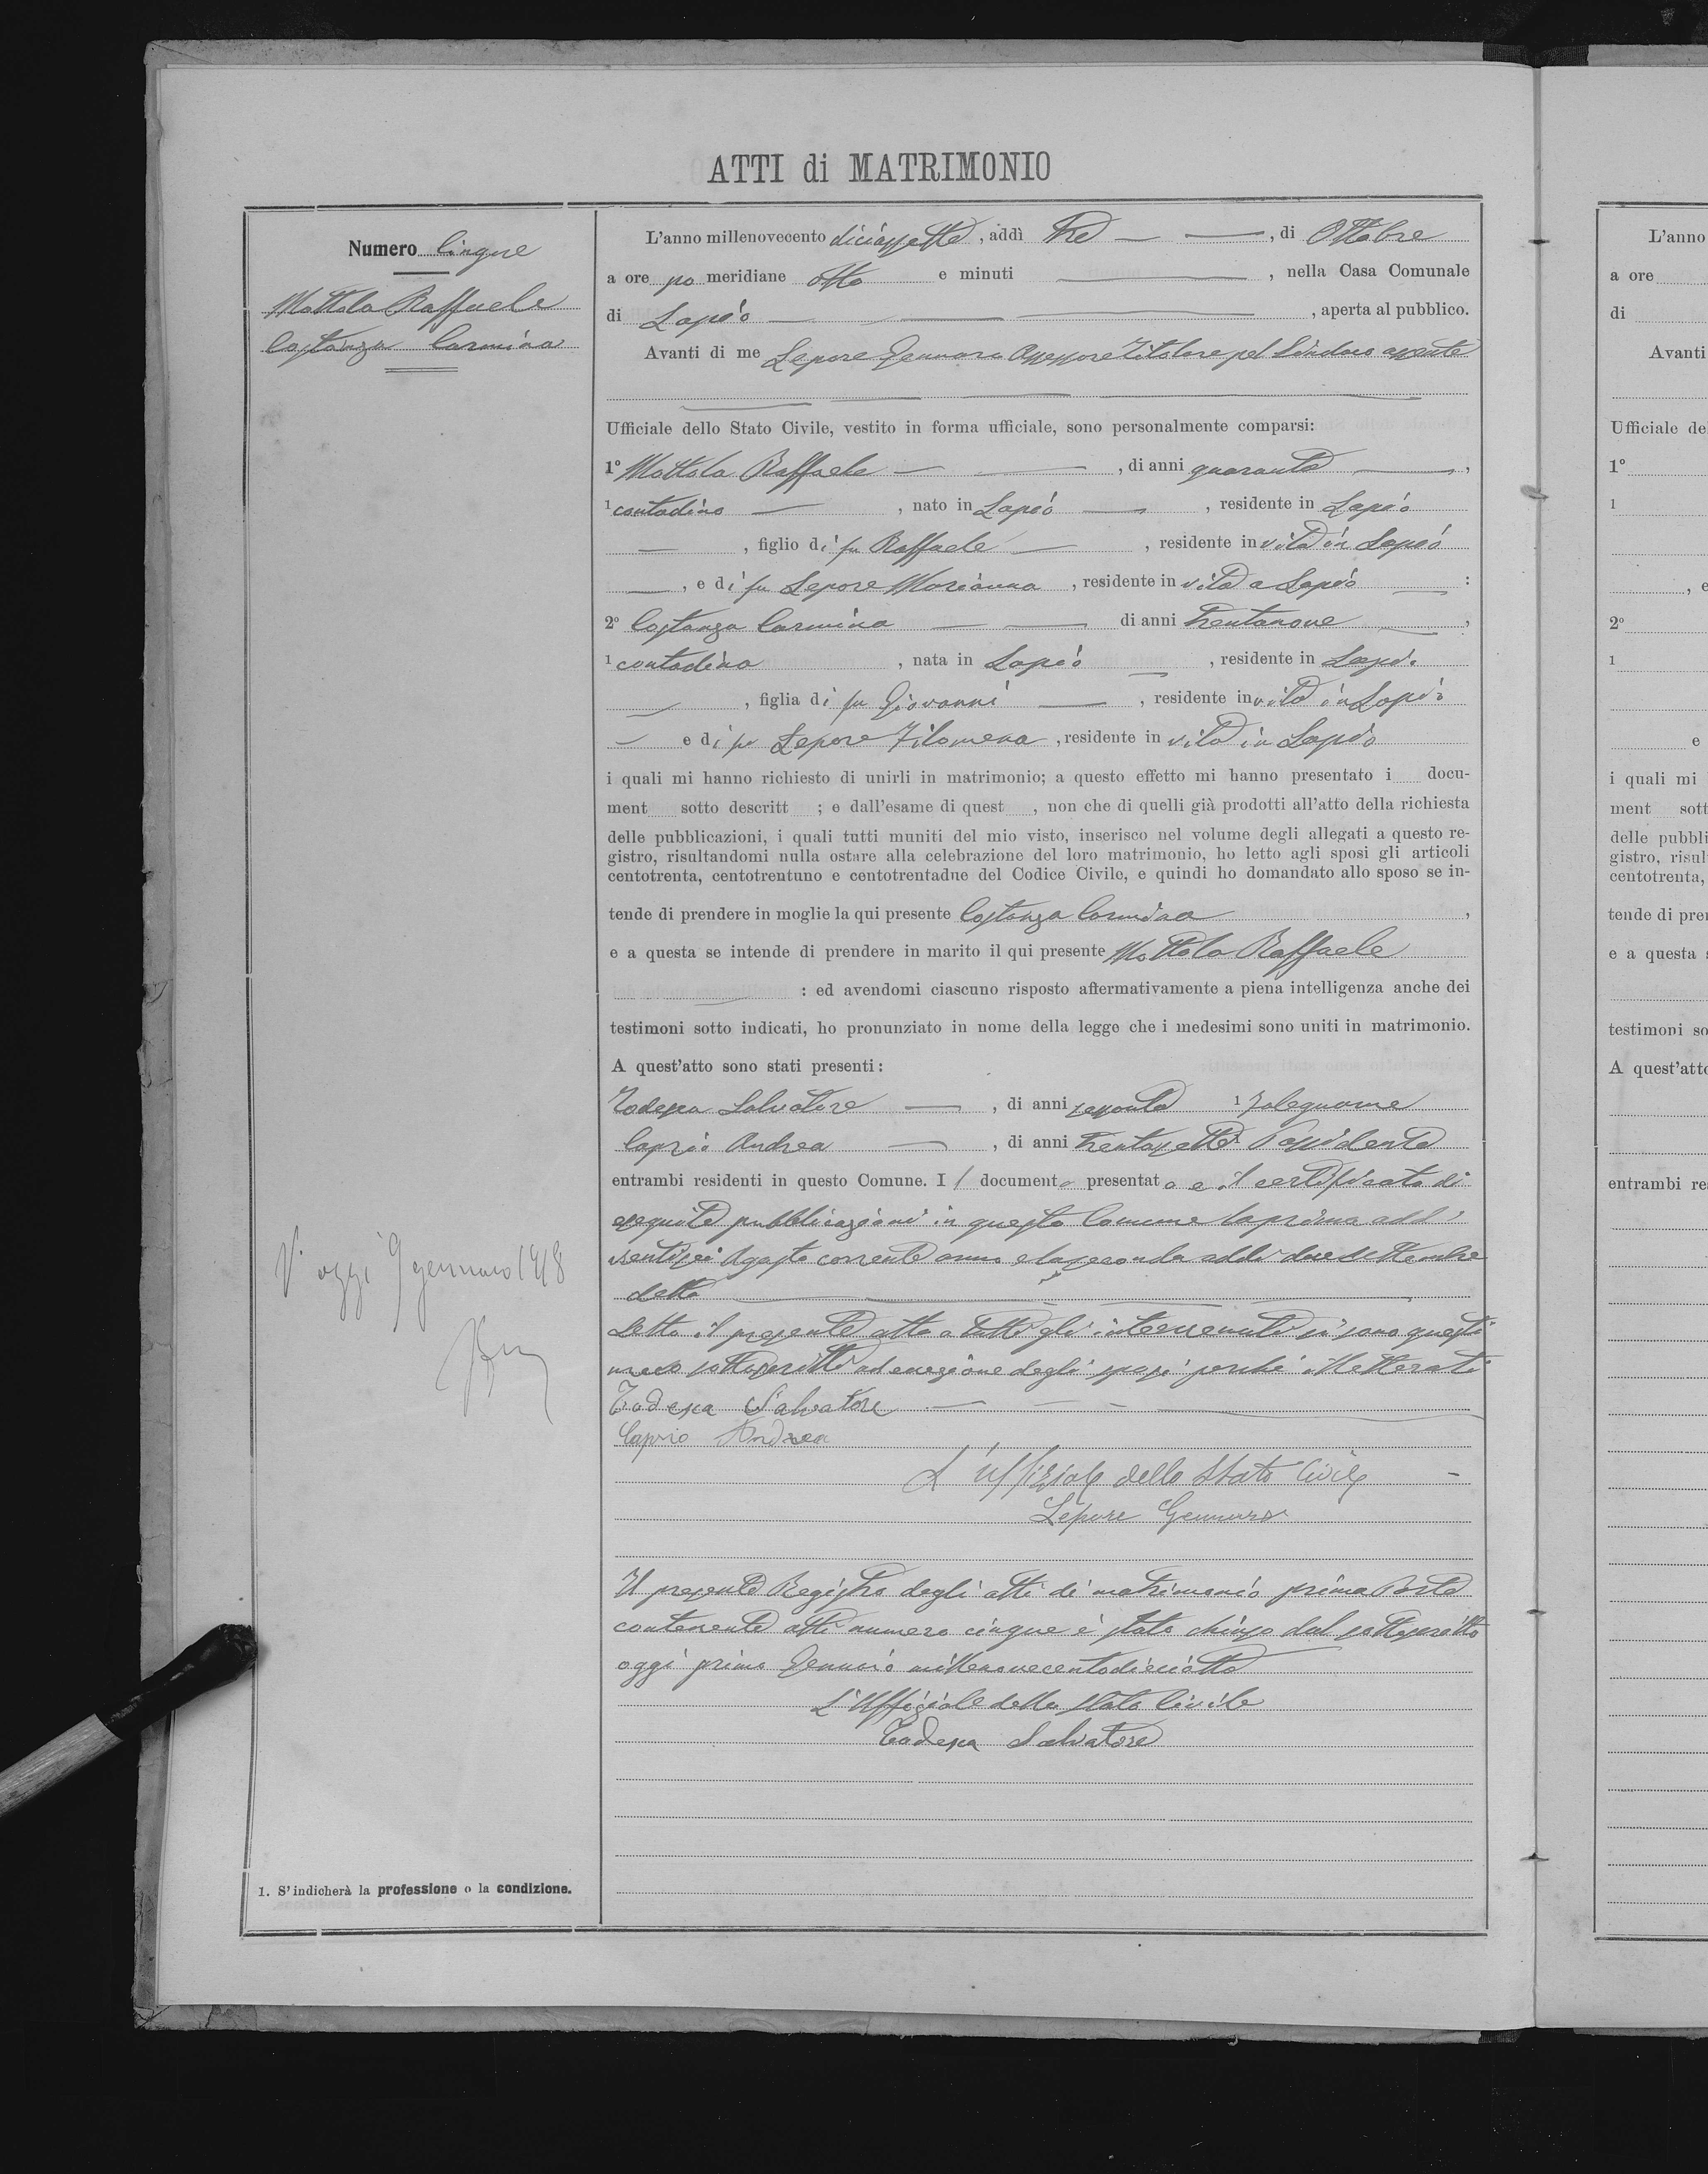 ATTI di MATRIMONIO
Numero Cinque
Mottola Raffaele
Costanza Carmina
L'anno millenovecento diciassette, addì tre, di Ottobre
a ore po meridiane otto e minuti, nella Casa Comunale
di Lapio, aperta al pubblico.
Avanti di me Lepore Gennaro Assessore Titolare pel Sindaco assente
Ufficiale dello Stato Civile, vestito in forma ufficiale, sono personalmente comparsi:
1° Mottola Raffaele, di anni quaranta,
1 contadino, nato in Lapio, residente in Lapio
, figlio di fu Raffaele, residente in vita in Lapio
, e di fu Lepore Marianna, residente in vita a Lapio:
2° Costanza Carmina di anni trentanove,
1 contadina, nata in Lapio, residente in Lapio
, figlia di fu Giovanni, residente in vita in Lapio
e di fu Lepore Filomena, residente in vita in Lapio
i quali mi hanno richiesto di unirli in matrimonio; a questo effetto mi hanno presentato i docu-
ment sotto descritt; e dall'esame di quest, non che di quelli già prodotti all'atto della richiesta
delle pubblicazioni, i quali tutti muniti del mio visto, inserisco nel volume degli allegati a questo re-
gistro, risultandomi nulla ostare alla celebrazione del loro matrimonio, ho letto agli sposi gli articoli
centotrenta, centotrentuno e centotrentadue del Codice Civile, e quindi ho domandato allo sposo se in-
tende di prendere in moglie la qui presente Costanza Carmina,
e a questa se intende di prendere in marito il qui presente Mottola Raffaele
: ed avendomi ciascuno risposto affermativamente a piena intelligenza anche dei
testimoni sotto indicati, ho pronunziato in nome della legge che i medesimi sono uniti in matrimonio.
A quest'atto sono stati presenti:
Todesca Salvatore, di anni sessanta 1 falegname
Caprio Andrea, di anni trentasette 1 Possidente
entrambi residenti in questo Comune. Il documento presentato e il certificato di
eseguite pubblicazioni in questo Comune la prima addì
ventisei Agosto corrente anno e la seconda addì due Settembre
detto
Letto il presente atto a tutti gli intervenuti si sono questi
meco sottoscritti ad eccezione degli sposi perché illetterati
Todesca Salvatore
Caprio Andrea
L'Uffiziale dello Stato Civile
Lepore Gennaro
Il presente Registro degli atti di matrimonio prima Parte
contenente atti numero cinque è stato chiuso dal sottoscritto
oggi primo Gennaio millenovecentodiciotto
L'Uffiziale dello Stato Civile
Todesca Salvatore
V° oggi 9 gennaio 1918
1. S'indicherà la professione o la condizione.
L'anno
a ore
di
Avanti
Ufficiale de
1°
1
, e
2°
1
e
i quali mi
ment sott
delle pubbli
gistro, risul
centotrenta,
tende di pre
e a questa
testimoni so
A quest'atto
entrambi re